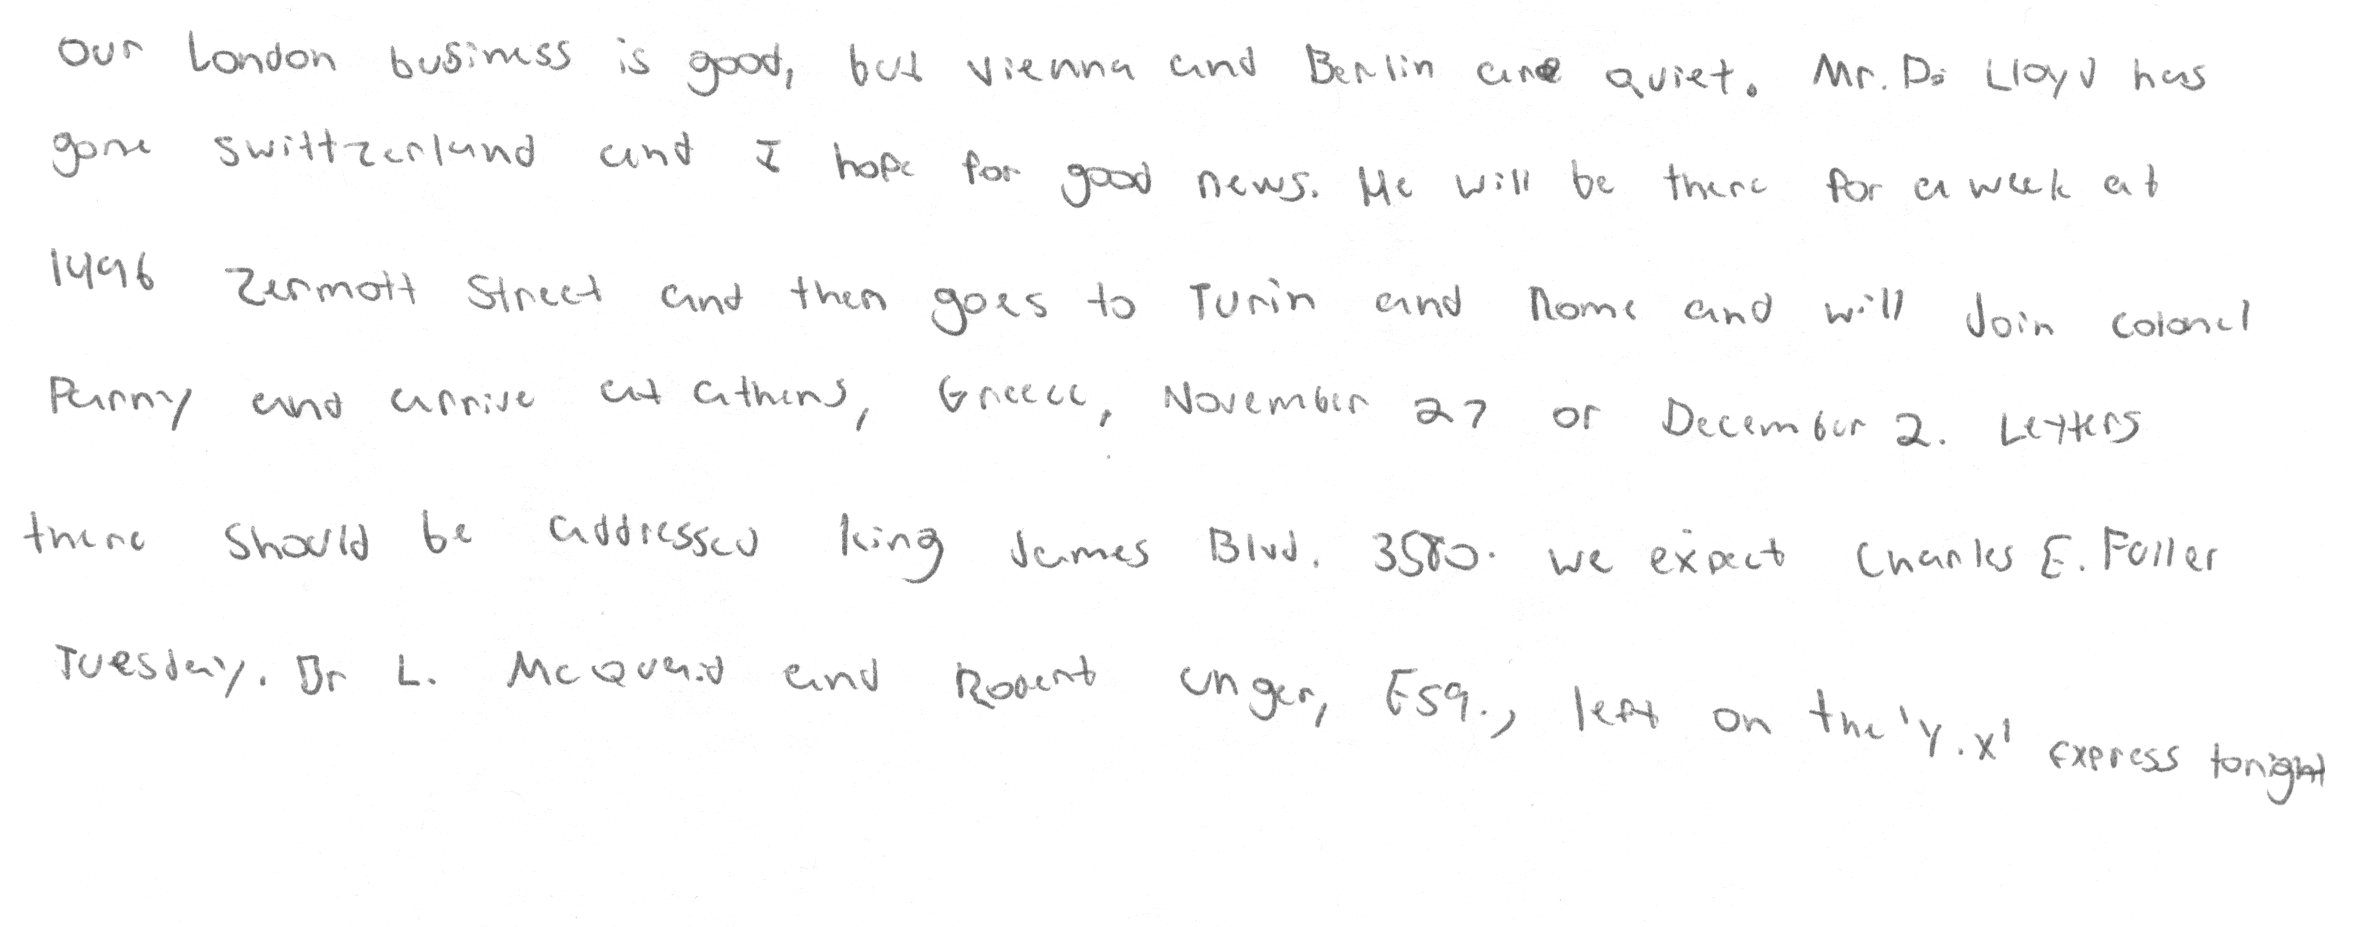 Our London business is good, but Vienna and Berlin are quiet. Mr. D. Lloyd has
gone Swittzerland and I hope for good news. He will be there for a week at
1496 Zermott Street and then goes to Turin and Rome and will Join Colonel
Parry and arrive at athens, Greece, November 27 or December 2. Letters
there should be addressed king James Blvd. 3580. We expect Charles E. Fuller
Tuesday. Dr L. McQuaid and Robert unger, Esq., left on the 'Y.X' Express tonight